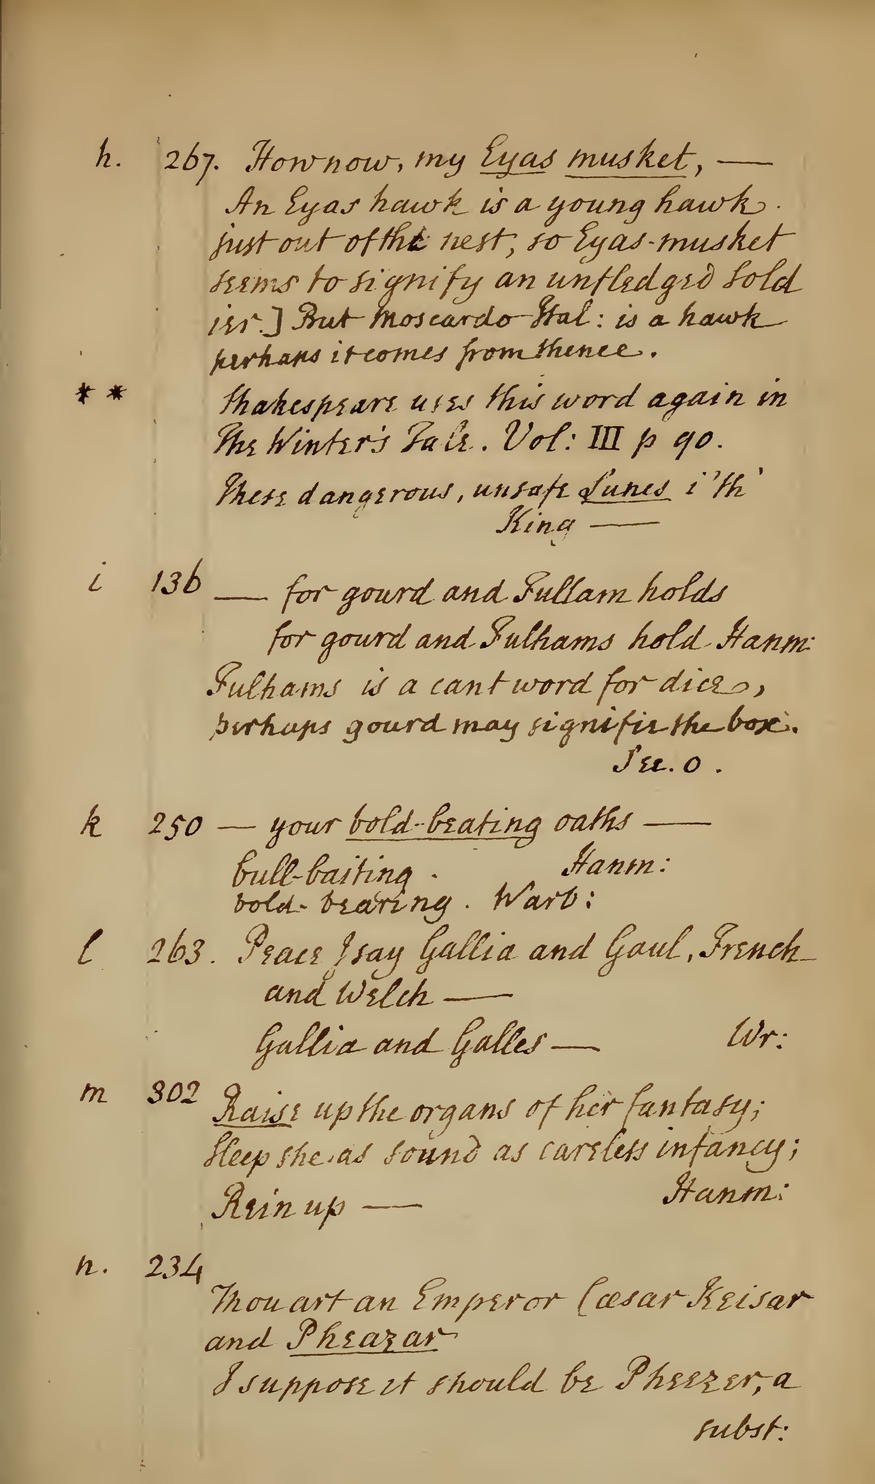 h. 267. How now, my Eyas musket, —
An Eyas hawk is a young hawk
just out of the nest, so Eyas-musket
seems to signify an unfledged Sold
ier.] But Moscardo Ital: is a hawk
perhaps it comes from thence.
* * Shakespeare uses this word again in
The Winter's Tale. Vol: III p 90.
These dangerous, unsafe Lunes i'th'
King —
i 136 — for gourd and Fullam holds
for gourd and Fulhams hold Hanm:
Fulhams is a cant word for dice,
perhaps gourd may signifie the box.
See. 0.
k 250 — your bold-beating oaths —
bull-baiting. Hanm:
bold-bearing. Warb:
l 263. Peace I say Gallia and Gaul, French
and Welch —
Gallia and Galles — Wr:
m 302 Raise up the organs of her fantasy;
Sleep she as sound as careless infancy;
Rein up — Hanm:
n. 234
Thou art an Emperor Cæsar Keisar
and Pheazar
I suppose it should be Pheezer, a
subst: